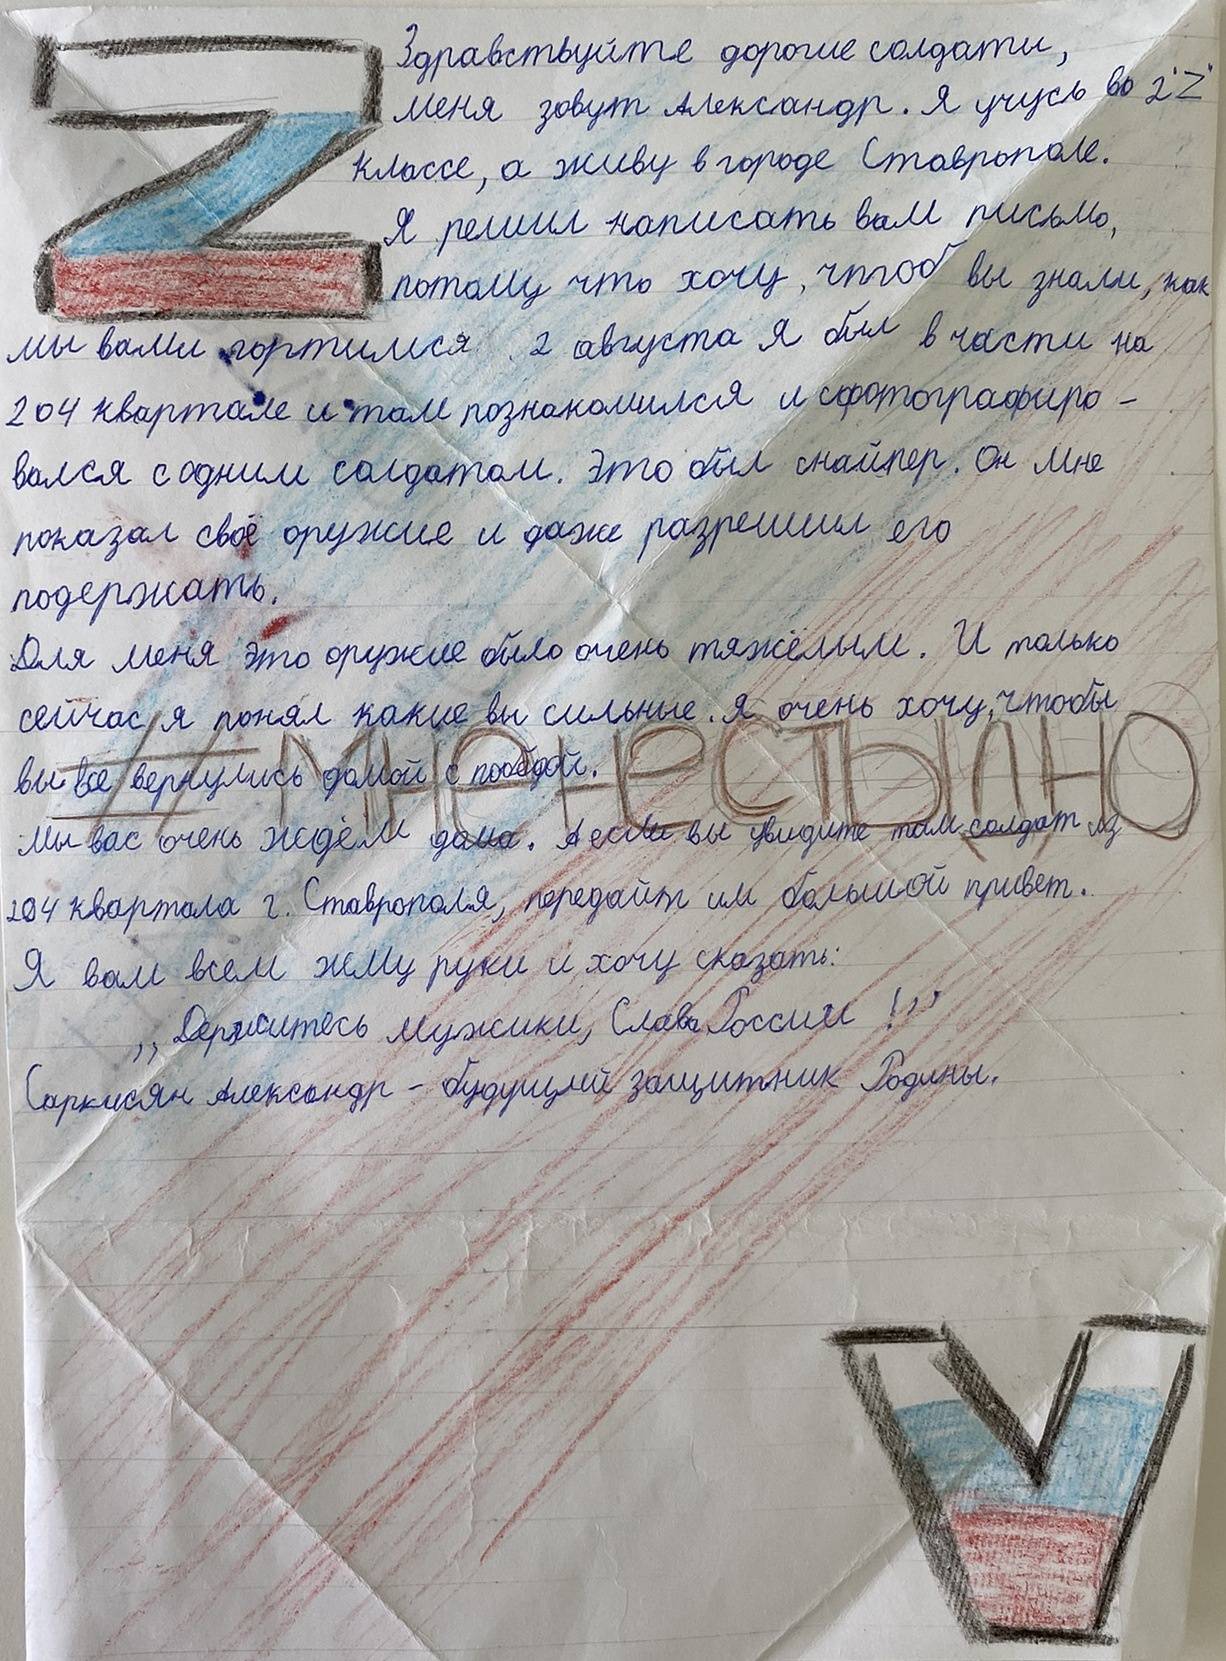 Здравствуйте дорогие солдаты,
меня зовут Александр. Я учусь во 2"Z"
классе, а живу в городе Ставрополе.
Я решил написать вам письмо,
потому что хочу, чтоб вы знали, как
мы вами гортимся. 2 августа я был в части на
204 квартале и там познакомился и сфотографиро-
вался с одним солдатом. Это был снайпер. Он мне
показал своё оружие и даже разрешил его
подержать.
Для меня это оружие было очень тяжёлым. И только
сейчас я понял какие вы сильные. Я очень хочу, чтобы
#МНЕНЕСТЫДНО
вы все вернулись домой с победой.
Мы вас очень ждём дома. А если вы увидите там солдат из
204 квартала г. Ставрополя, передайте им большой привет.
Я вам всем жму руки и хочу сказать:
,,Держитесь мужики, Слава России!''
Саркисян Александр - будущий защитник Родины.
Z
V